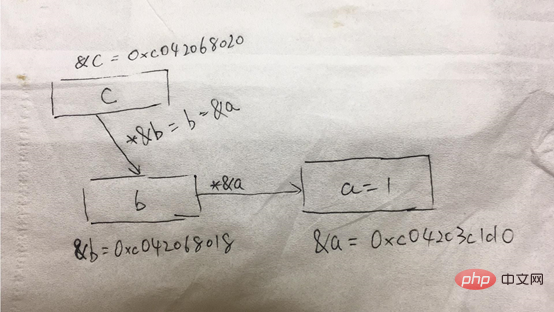 &C = 0xc042068020
C
*&b = b = &a
b
*&a
a = 1
&b = 0xc042068018
&a = 0xc04203c1d0
php 中文网